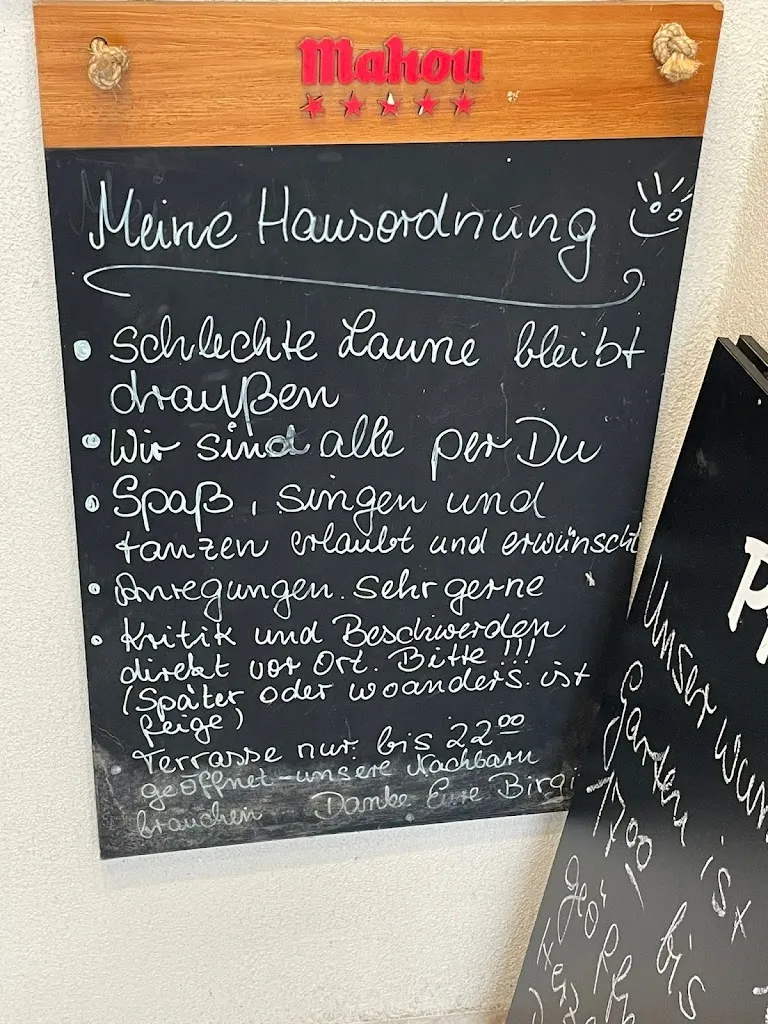 Mahou
Meine Hausordnung
• Schlechte Laune bleibt
draußen
• Wir sind alle per Du
• Spaß, singen und
tanzen erlaubt und erwünscht
• Anregungen sehr gerne
• Kritik und Beschwerden
direkt vor Ort. Bitte!!!
(Später oder woanders ist
feige)
• Terrasse nur bis 22⁰⁰
geöffnet - unsere Nachbarn
brauchen Danke Eure Birgi
Unser
Garten ist
1700 bis